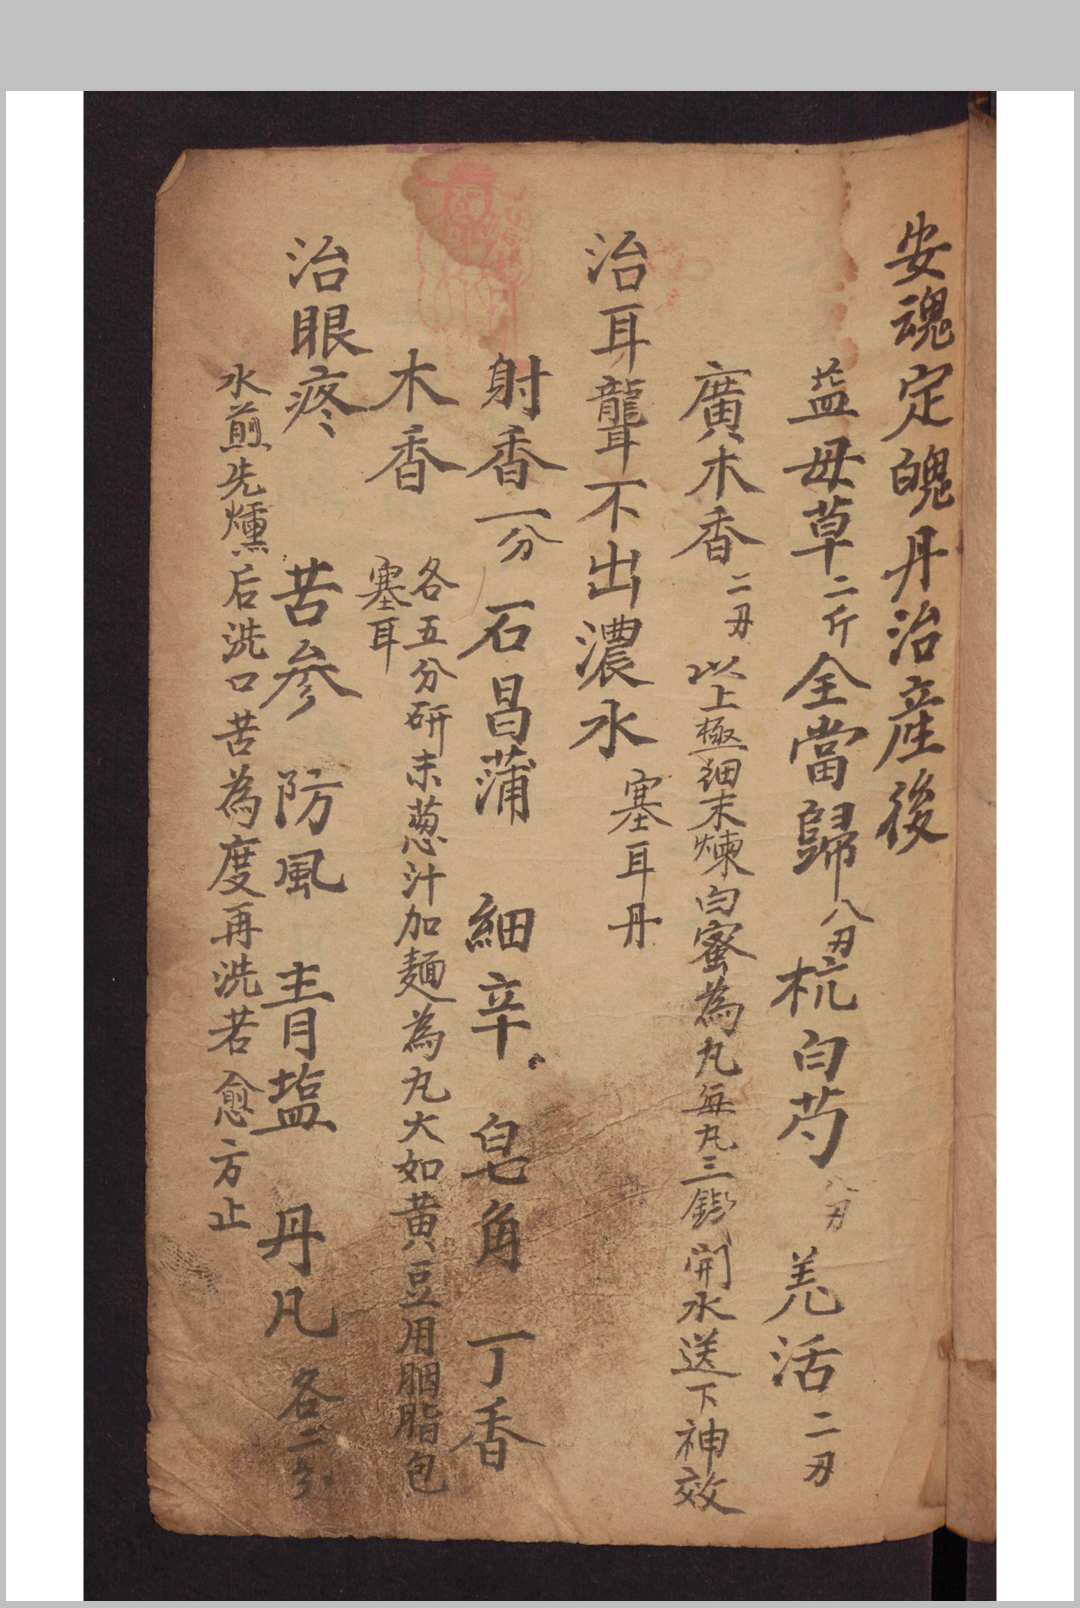 安魂定魄丹治產後
益母草二斤全當歸八刃杭白芍八刃羌活二刃
廣木香二刃以上極細末煉白蜜為丸每丸三錢開水送下神效
治耳聾不出濃水塞耳丹
射香一分石昌蒲細辛皂角丁香
木香各五分研末葱汁加麵為丸大如黄豆用胭脂包
塞耳
治眼疼苦參防風青塩丹凡各二
水煎先燻后洗口苦為度再洗若愈方止